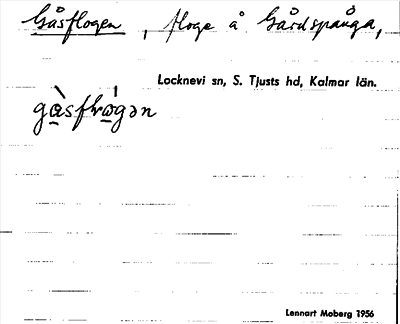 Gåsflogen, floge å Gårdspånga,
Locknevi sn, S. Tjusts hd, Kalmar län.
Lennart Moberg 1956